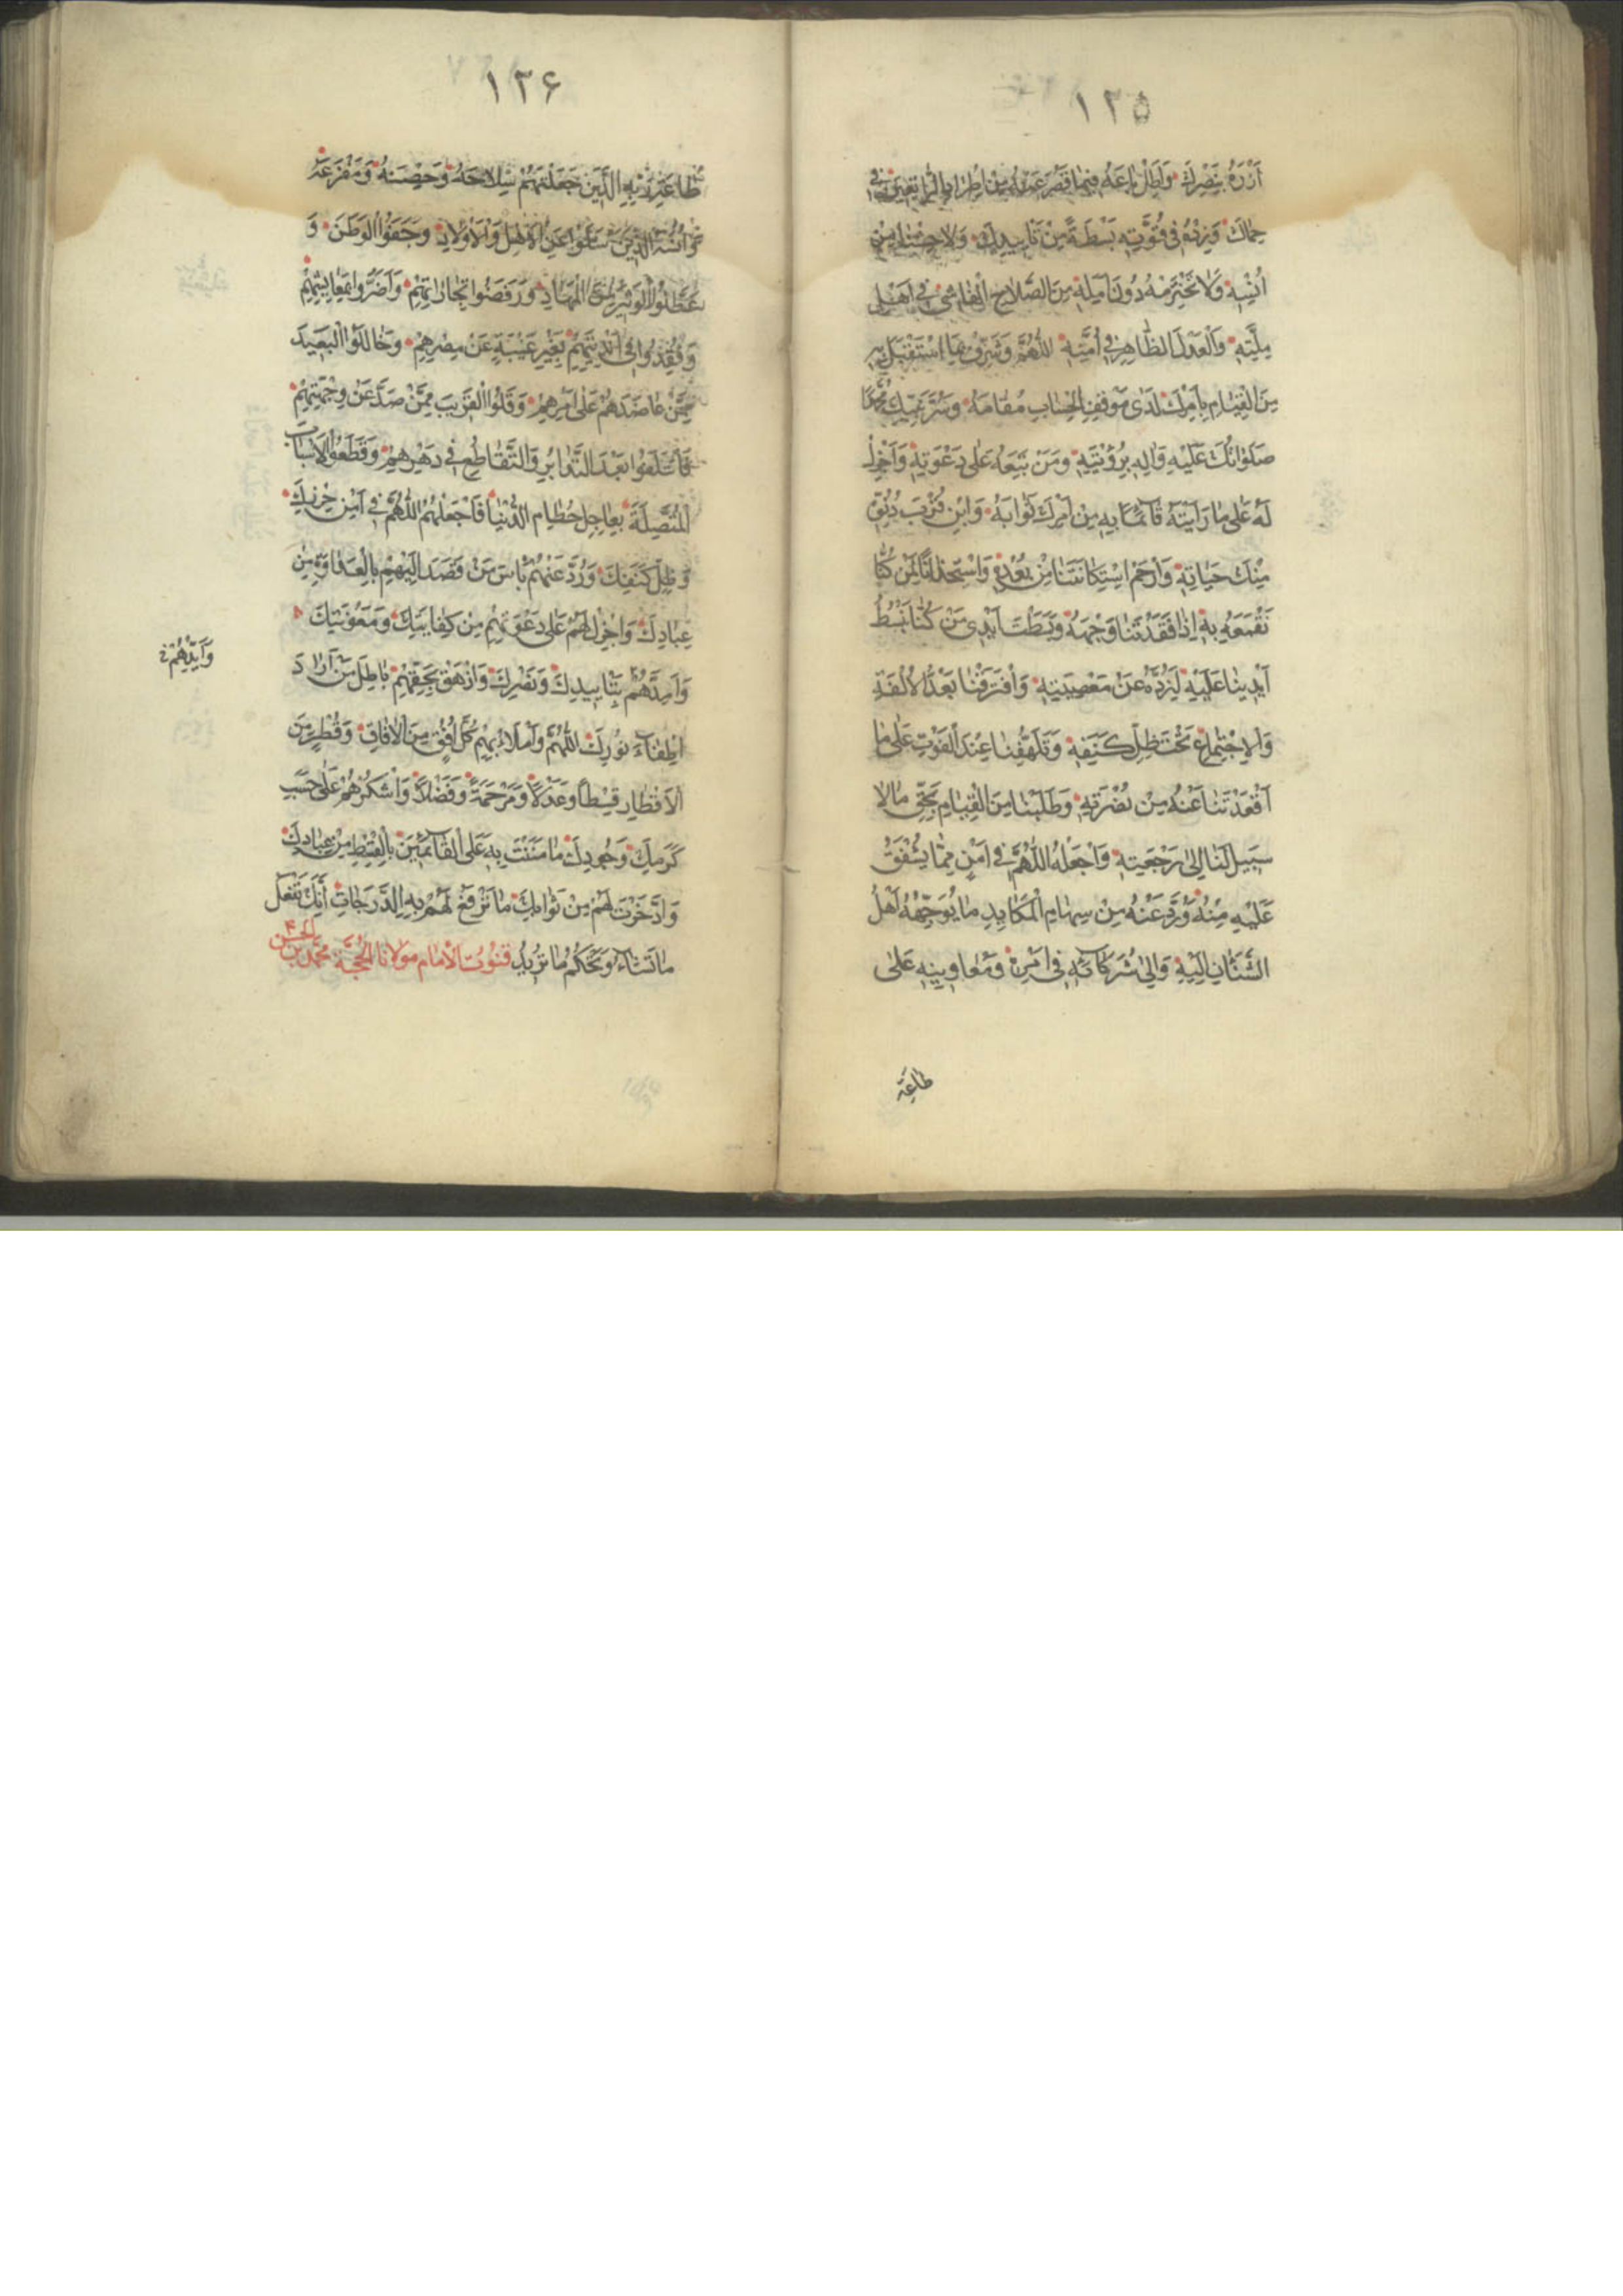 ١٢۵
اَزْرَهُ بِنَصْرِكَ وَاَطِلْ باعَهُ فيما قَصُرَ عَنْهُ مِنْ اِطْرادِ الرّاتِعينَ في
حِماكَ وَزِدْهُ في قُوَّتِهِ بَسْطَةً مِنْ تَأْييدِكَ وَلا تُوحِشْنا مِنْ
اُنْسِهِ وَلا تَخْتَرِمْهُ دُونَ اَمَلِهِ مِنَ الصَّلاحِ الْفاشي في اَهْلِ
مِلَّتِهِ وَالْعَدْلِ الظّاهِرِ في اُمَّتِهِ اَللّهُمَّ وَشَرِّفْ بِمَا اسْتَقْبَلَ بِهِ
مِنَ الْقِيامِ بِاَمْرِكَ لَدى مَوْقِفِ الْحِسابِ مُقامَهُ وَسُرَّ نَبِيَّكَ مُحَمَّدًا
صَلَواتُكَ عَلَيْهِ وَآلِهِ بِرُؤْيَتِهِ وَمَنْ تَبِعَهُ عَلى دَعْوَتِهِ وَاَجْزِلْ
لَهُ عَلى ما رَاَيْتَهُ قآئِمًا بِهِ مِنْ اَمْرِكَ ثَوابَهُ وَابِنْ قُرْبَ دُنُوِّهِ
مِنْكَ في حَيانِهِ وَارْحَمِ اسْتِكانَتَنا مِنْ بَعْدِهِ وَاسْتِخْذاءَنا لِمَنْ كُنّا
نَقْمَعُهُ بِهِ اِذا فَقَدْتَنا وَجْهَهُ وَبَسَطْتَ اَيْدِيَ مَنْ كُنّا نَبْسُطُ
اَيْدِيَنا عَلَيْهِ لِنَرُدَّهُ عَنْ مَعْصِيَتِهِ وَافْتَرَقْنا بَعْدَ الْاُلْفَةِ
وَالْاِجْتِماعِ تَحْتَ ظِلِّ كَنَفِهِ وَتَلَهَّفْنا عِنْدَ الْفَوْتِ عَلى ما
اَقْعَدْتَنا عَنْهُ مِنْ نُصْرَتِهِ وَطَلَبْنا مِنَ الْقِيامِ بِحَقِّ ما لا
سَبيلَ لَنا اِلى رَجْعَتِهِ وَاجْعَلْهُ اللّهُمَّ في اَمْنٍ مِمّا يُشْفَقُ
عَلَيْهِ مِنْهُ وَرُدَّ عَنْهُ مِنْ سِهامِ الْمَكايِدِ ما يُوَجِّهُهُ اَهْلُ
الشَّنَئانِ اِلَيْهِ وَاِلى شُرَكآئِهِ في اَمْرِهِ وَمُعاوِنيهِ عَلى
طاعَةِ
١٢۶
طاعَةِ رَبِّهِ الَّذينَ جَعَلْتَهُمْ سِلاحَهُ وَحِصْنَهُ وَمَفْزَعَهُ
وَاُنْسَهُ الَّذينَ سَلَوْا عَنِ الْاَهْلِ وَالْاَوْلادِ وَجَفَوُا الْوَطَنَ وَ
عَطَّلُوا الْوَثيرَ مِنَ الْمِهادِ وَرَفَضُوا تِجاراتِهِمْ وَاَضَرُّوا بِمَعايِشِهِمْ
وَفُقِدُوا في اَنْدِيَتِهِمْ بِغَيْرِ غَيْبَةٍ عَنْ مِصْرِهِمْ وَخالَلُوا الْبَعيدَ
مِمَّنْ عاضَدَهُمْ عَلى اَمْرِهِمْ وَقَلَوُا الْقَريبَ مِمَّنْ صَدَّ عَنْ وِجْهَتِهِمْ
فَائْتَلَفُوا بَعْدَ التَّدابُرِ وَالتَّقاطُعِ في دَهْرِهِمْ وَقَطَعُوا الْاَسْبابَ
الْمُتَّصِلَةَ بِعاجِلِ حُطامِ الدُّنْيا فَاجْعَلْهُمُ اللّهُمَّ في اَمْنِ حِرْزِكَ
وَظِلِّ كَنَفِكَ وَرُدَّ عَنْهُمْ بَأْسَ مَنْ قَصَدَ اِلَيْهِمْ بِالْعَداوَةِ مِنْ
عِبادِكَ وَاَجْزِلْ لَهُمْ عَلى دَعْوَتِهِمْ مِنْ كِفايَتِكَ وَمَعُونَتِكَ
وَاَيِّدْهُمْ
وَاَمِدَّهُمْ بِتَأْييدِكَ وَنَصْرِكَ وَاَزْهِقْ بِحَقِّهِمْ باطِلَ مَنْ اَرادَ
اِطْفآءَ نُورِكَ اَللّهُمَّ وَامْلَأْ بِهِمْ كُلَّ اُفُقٍ مِنَ الْآفاقِ وَقُطْرٍ مِنَ
الْاَقْطارِ قِسْطًا وَعَدْلًا وَمَرْحَمَةً وَفَضْلًا وَاشْكُرْهُمْ عَلى حَسَبِ
كَرَمِكَ وَجُودِكَ ما مَنَنْتَ بِهِ عَلَى الْقآئِمينَ بِالْقِسْطِ مِنْ عِبادِكَ
وَادَّخَرْتَ لَهُمْ مِنْ ثَوابِكَ ما تَرْفَعُ لَهُمْ بِهِ الدَّرَجاتِ اِنَّكَ تَفْعَلُ
ما تَشآءُ وَتَحْكُمُ ما تُريدُ قُنُوتُ الْاِمامِ مَوْلانَا الْحُجَّةِ مُحَمَّدِ بْنِ الْحَسَنِ